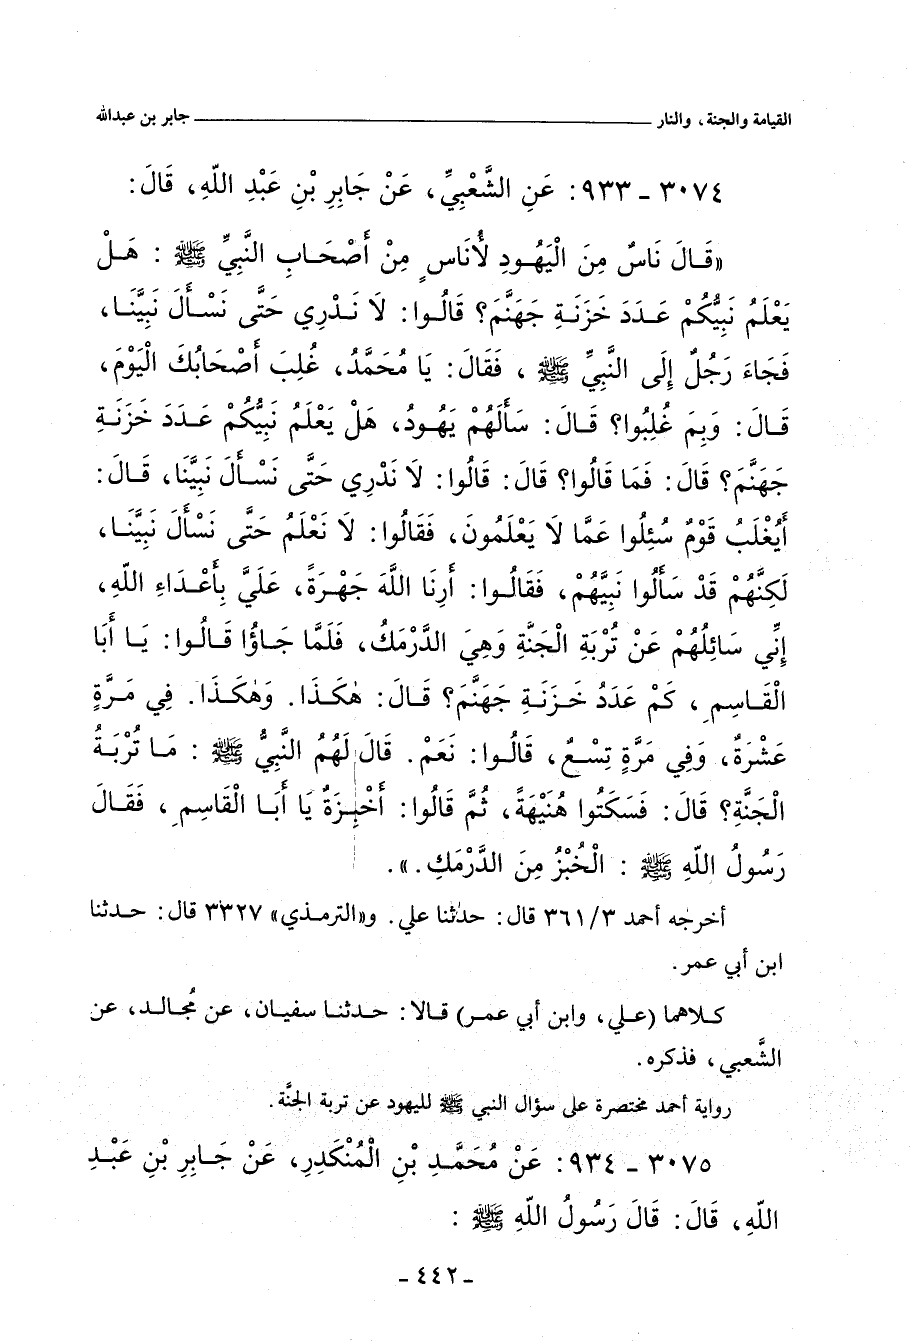 القيامة والجنة، والنار ـــــــــــــــــــــــــــــــــــــ جابر بن عبدالله
٣٠٧٤ - ٩٣٣: عَنِ الشَّعْبِيِّ، عَنْ جَابِرِ بْنِ عَبْدِ اللّهِ، قَالَ:
«قَالَ نَاسٌ مِنَ الْيَهُودِ لأُنَاسٍ مِنْ أَصْحَابِ النَّبِيِّ ﷺ : هَلْ
يَعْلَمُ نَبِيُّكُمْ عَدَدَ خَزَنَةِ جَهَنَّمَ؟ قَالُوا: لَا نَدْرِي حَتَّى نَسْأَلَ نَبِيَّنَا،
فَجَاءَ رَجُلٌ إِلَى النَّبِيِّ ﷺ ، فَقَالَ: يَا مُحَمَّدُ، غُلِبَ أَصْحَابُكَ الْيَوْمَ،
قَالَ: وَبِمَ غُلِبُوا؟ قَالَ: سَأَلَهُمْ يَهُودُ، هَلْ يَعْلَمُ نَبِيُّكُمْ عَدَدَ خَزَنَةِ
جَهَنَّمَ؟ قَالَ: فَمَا قَالُوا؟ قَالَ: قَالُوا: لَا نَدْرِي حَتَّى نَسْأَلَ نَبِيَّنَا، قَالَ:
أَيُغْلَبُ قَوْمٌ سُئِلُوا عَمَّا لَا يَعْلَمُونَ، فَقَالُوا: لَا نَعْلَمُ حَتَّى نَسْأَلَ نَبِيَّنَا،
لَكِنَّهُمْ قَدْ سَأَلُوا نَبِيَّهُمْ، فَقَالُوا: أَرِنَا اللَّهَ جَهْرَةً، عَلَيَّ بِأَعْدَاءِ اللّهِ،
إِنِّي سَائِلُهُمْ عَنْ تُرْبَةِ الْجَنَّةِ وَهِيَ الدَّرْمَكُ، فَلَمَّا جَاؤُا قَالُوا: يَا أَبَا
الْقَاسِمِ، كَمْ عَدَدُ خَزَنَةِ جَهَنَّمَ؟ قَالَ: هٰكَذَا. وَهٰكَذَا. فِي مَرَّةٍ
عَشْرَةٌ، وَفِي مَرَّةٍ تِسْعٌ، قَالُوا: نَعَمْ. قَالَ لَهُمُ النَّبِيُّ ﷺ : مَا تُرْبَةُ
الْجَنَّةِ؟ قَالَ: فَسَكَتُوا هُنَيْهَةً، ثُمَّ قَالُوا: أَخُبْزَةٌ يَا أَبَا الْقَاسِمِ، فَقَالَ
رَسُولُ اللّهِ ﷺ : الْخُبْزُ مِنَ الدَّرْمَكِ.».
أخرجه أحمد ٣٦١/٣ قال: حدثنا علي. و«الترمذي» ٣٣٢٧ قال: حدثنا
ابن أبي عمر.
كلاهما (علي، وابن أبي عمر) قالا: حدثنا سفيان، عن مُجالد، عن
الشَّعبي، فذكره.
رواية أحمد مختصرة على سؤال النبي ﷺ لليهود عن تربة الجنَّة.
٣٠٧٥ - ٩٣٤: عَنْ مُحَمَّدِ بْنِ الْمُنْكَدِرِ، عَنْ جَابِرِ بْنِ عَبْدِ
اللّهِ، قَالَ: قَالَ رَسُولُ اللّهِ ﷺ :
- ٤٤٢ -